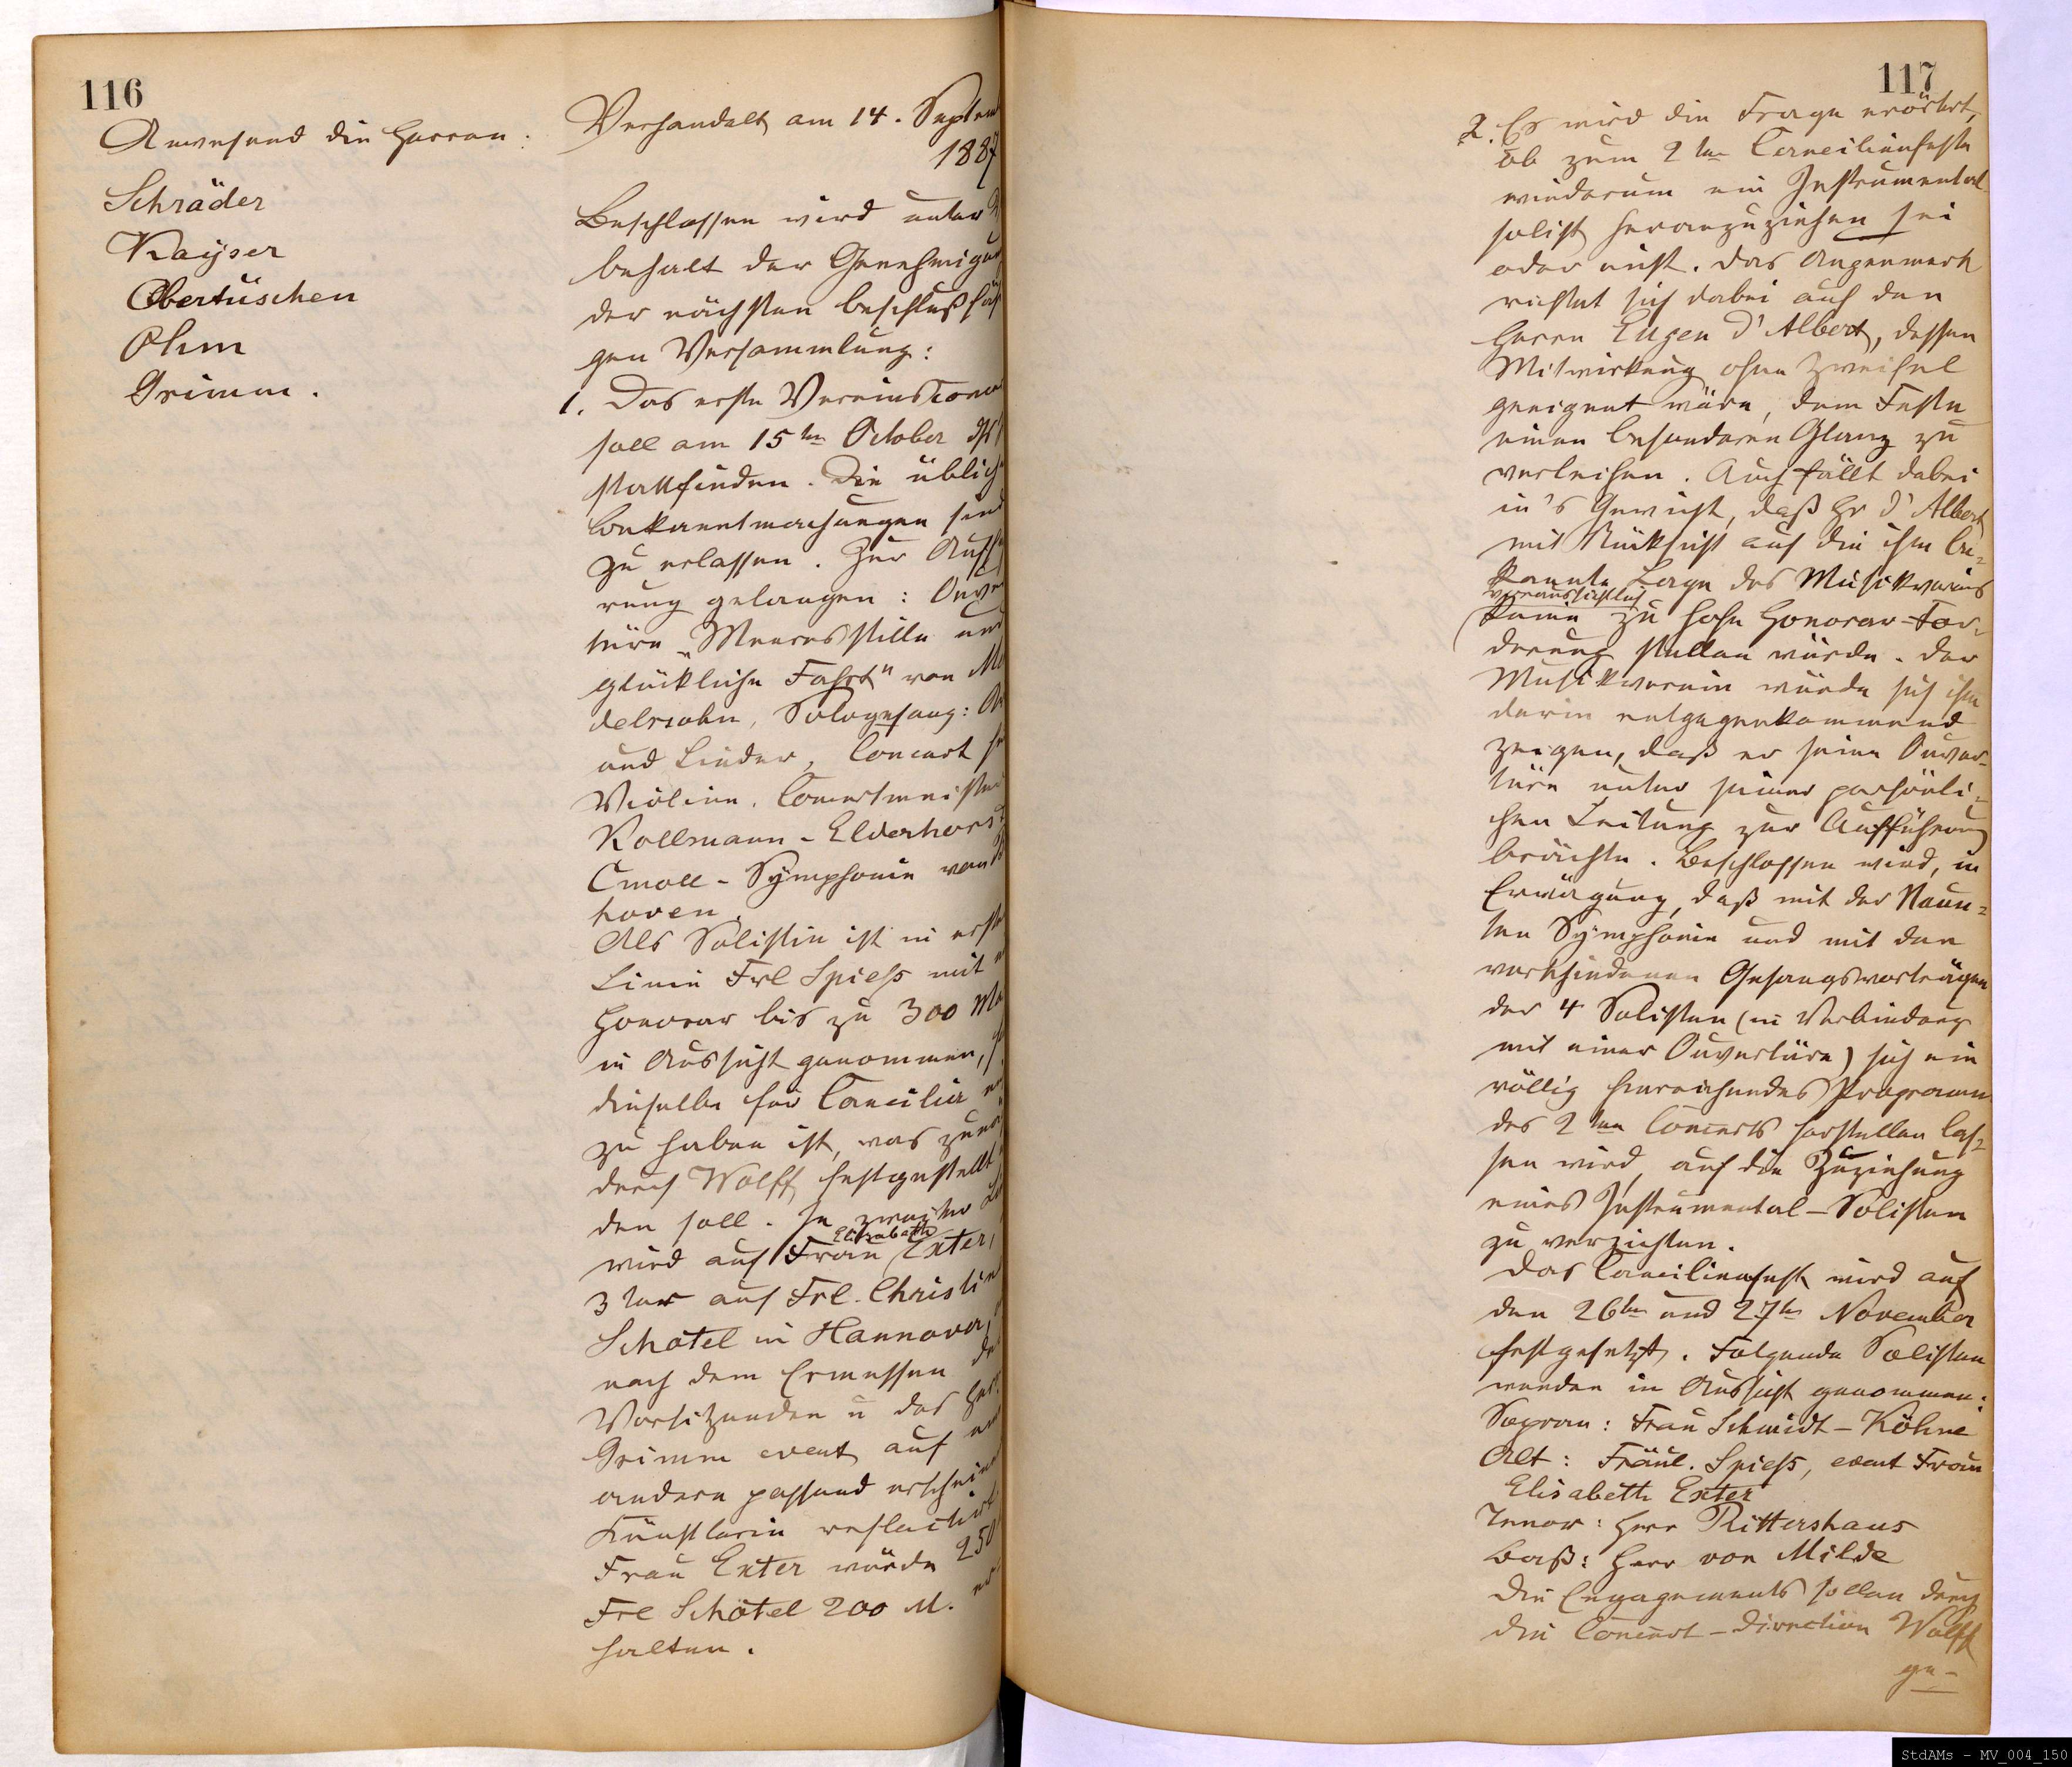 116
Anwesend die Herren:
Schräder
Kayser
Obertüschen
Ohm
Grimm.
Verhandelt am 14. Septem
1887
Beschlossen wird unter
behalt der Genehmigun
der nächsten beschlußfäh
gen Versammlung:
1. Das erste Vereinsconc
soll am 15ten October ds
stattfinden. Die üblich
Bekanntmachungen sind
zu erlassen. Zur Auff
rung gelangen: Ouver
türe „Meeresstille und
glückliche Fahrt" von Me
delssohn, Sologesang: A
und Lieder, Concert f
Violine, Concertmeister
Kollmann-Elderhorst
Cmoll-Symphonie von B
hoven.
Als Solistin ist in erst
Linie Frl Spieß mit
Honorar bis zu 300 Ma
in Aussicht genommen,
dieselbe für Caecilia
zu haben ist, was zu
durch Wolff festgestellt
den soll. In zweiter Li
wird auf Frau Elisabeth Exter,
3ter auf Frl. Christin
Schotel in Hannover,
nach dem Ermessen de
Vorsitzenden u des Her
Grimm event auf
andere passend erschein
Künstlerin reflectirt.
Frau Exter würde 250
Frl Schotel 200 M. er
halten.
117
2. Es wird die Frage erörtert,
ob zum 2ten Caecilienfeste
wiederum ein Instrumental
solist heranzuziehen sei
oder nicht. Das Augenmerk
richtet sich dabei auf den
Herrn Eugen d'Albert, dessen
Mitwirkung ohne Zweifel
geeignet wäre, dem Feste
einen besonderen Glanz zu
verleihen. Auch fällt dabei
in's Gewicht, daß Hr d'Albert
mit Rücksicht auf die ihm be=
kannte Lage des Musikvereins
voraussichtlich
keine zu hohe Honorar-For=
derung stellen würde. Der
Musikverein würde sich ihm
darin entgegenkommend
zeigen, daß er seine Ouver=
türe unter seiner persönli=
chen Leitung zur Aufführung
brächte. Beschlossen wird, in
Erwägung, daß mit der Neun=
ten Symphonie und mit den
verschiedenen Gesangsvorträgen
der 4 Solisten (in Verbindung
mit einer Ouvertüre) sich ein
völlig hinreichendes Programm
des 2ten Concerts herstellen las=
sen wird, auf die Zuziehung
eines Instrumental-Solisten
zu verzichten.
Das Caecilienfest wird auf
den 26ten und 27ten November
festgesetzt. Folgende Solisten
werden in Aussicht genommen:
Sopran: Frau Schmidt-Köhne
Alt: Fräul. Spieß, event Frau
Elisabeth Exter
Tenor: Herr Rittershaus
Baß: Herr von Milde
Die Engagements sollen durch
die Concert-Direction Wolff
ge-
StdAMs - MV_004_150